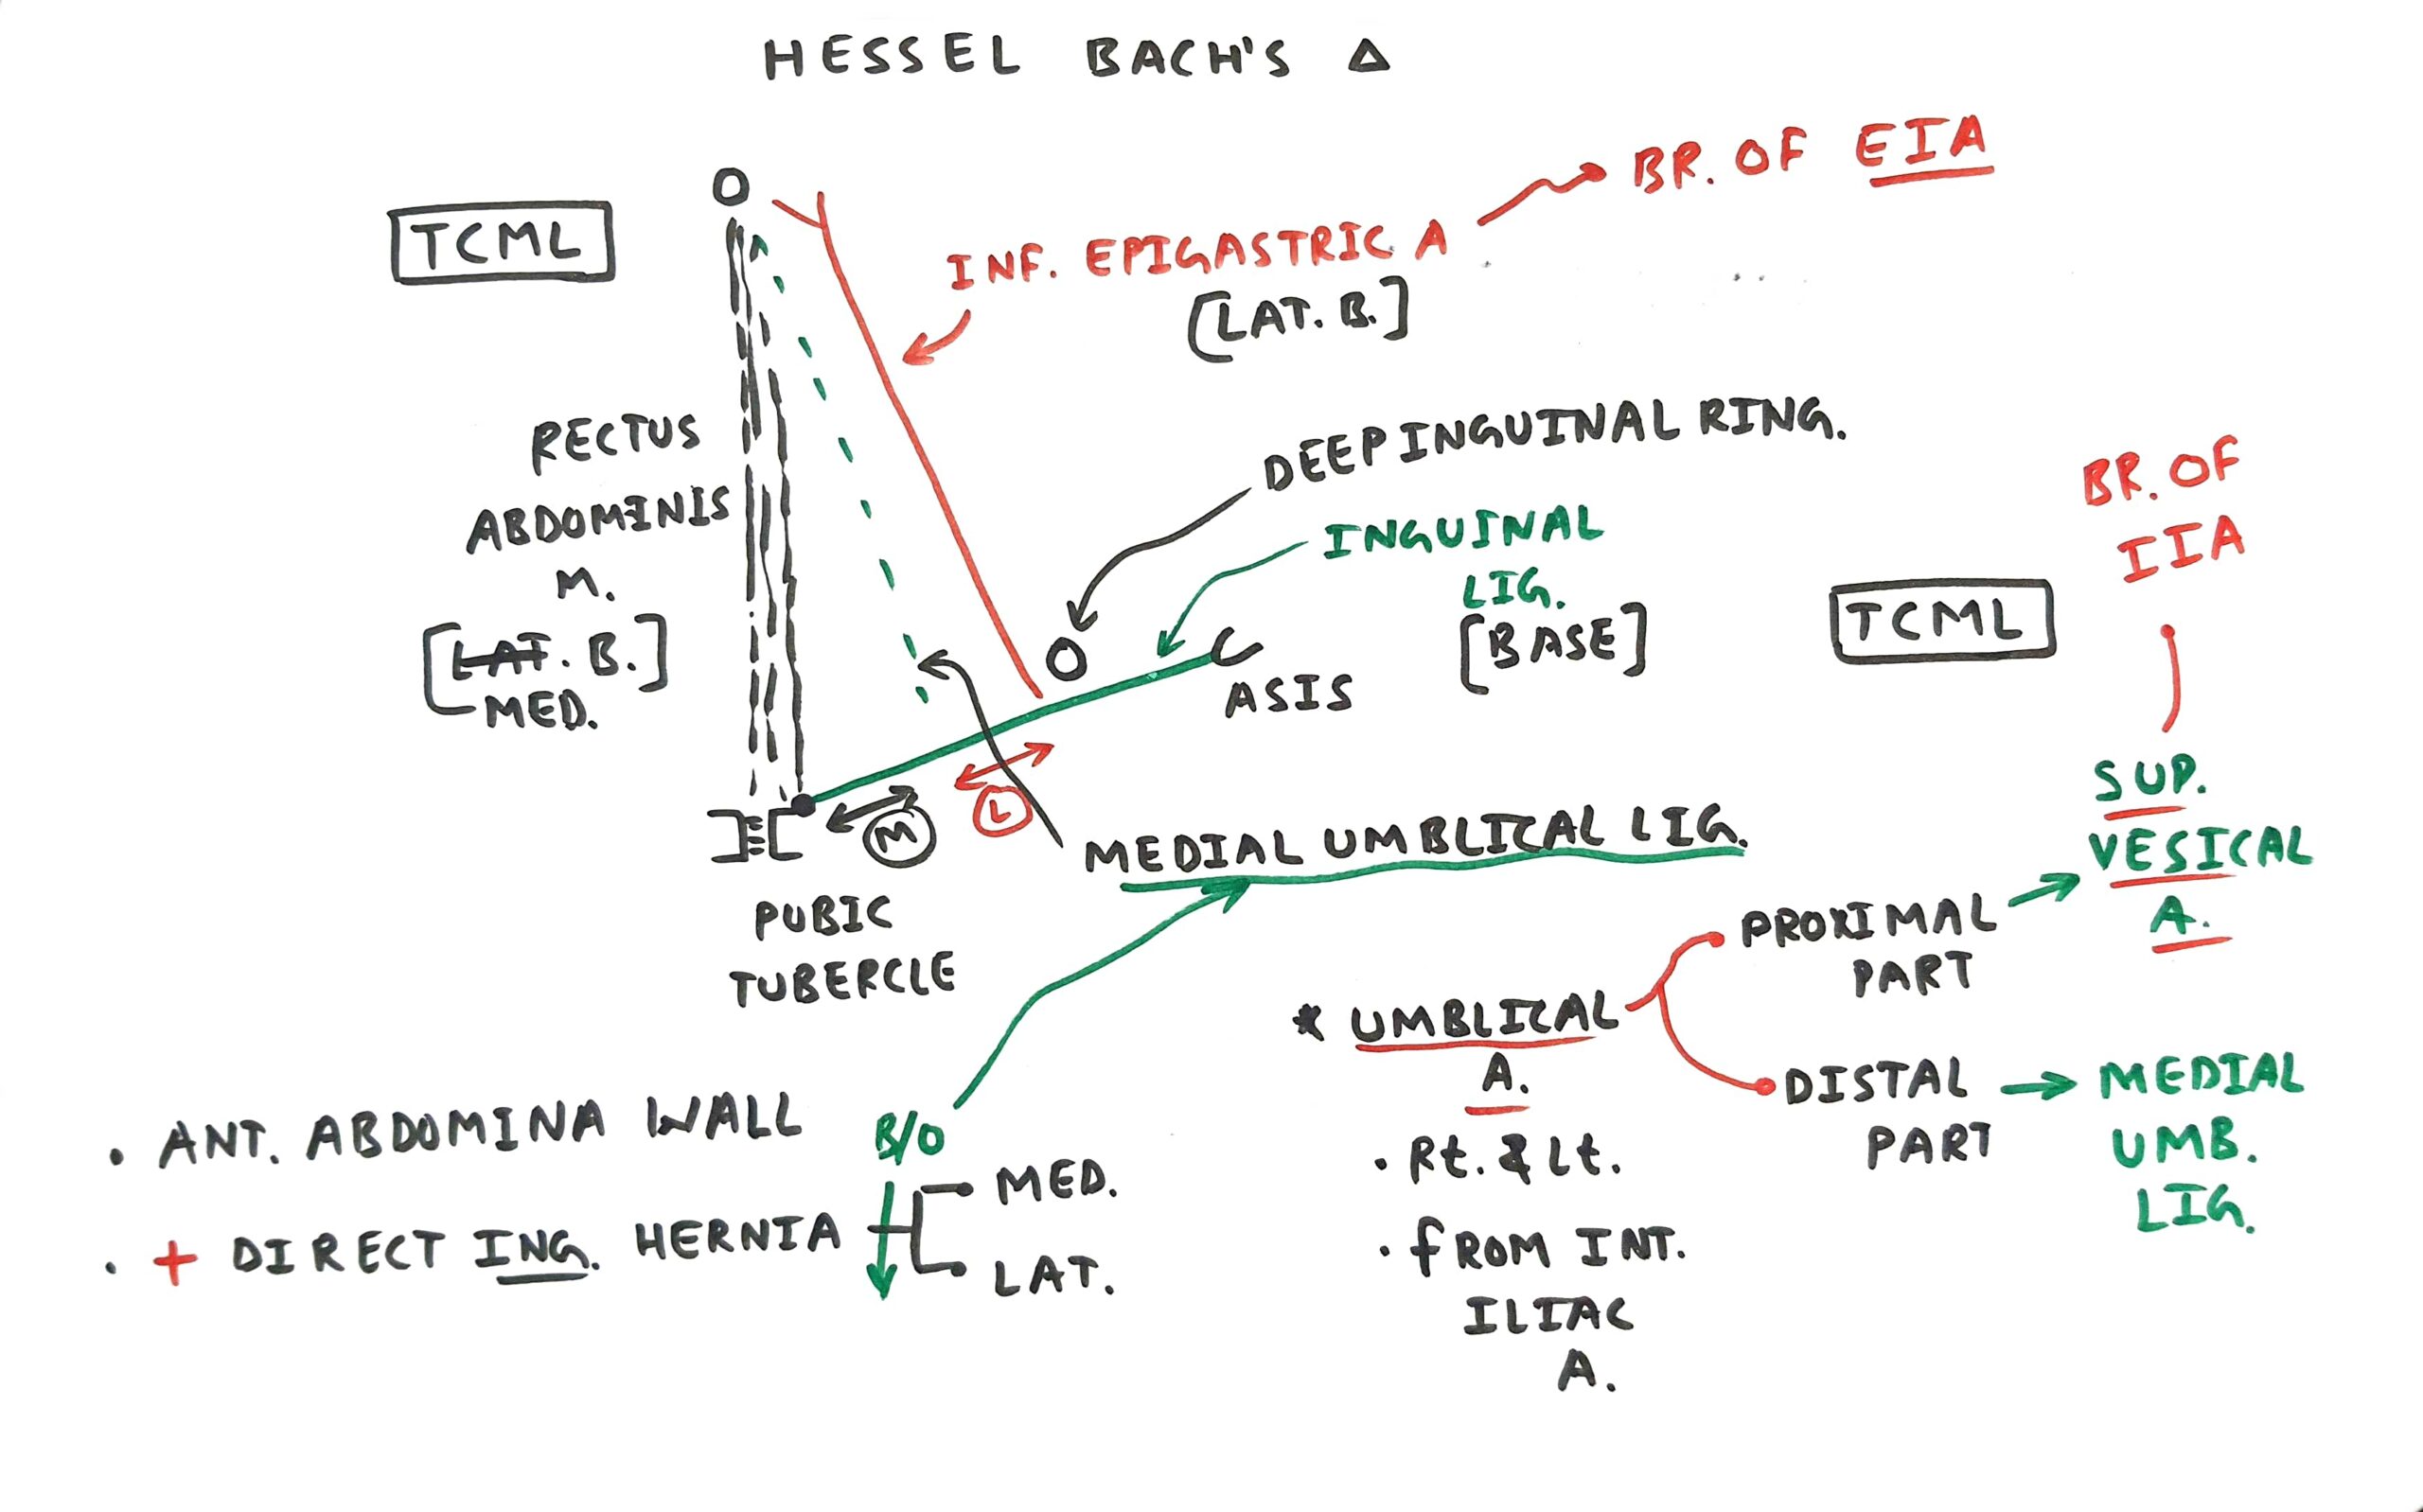 HESSEL BACH'S Δ
TCML
INF. EPIGASTRIC A
[LAT. B.]
BR. OF EIA
RECTUS
ABDOMINIS
M.
[LAT. B.]
MED.
DEEP INGUINAL RING.
INGUINAL
LIG.
[BASE]
ASIS
M
L
PUBIC
TUBERCLE
MEDIAL UMBLICAL LIG.
BR. OF
IIA
TCML
SUP.
VESICAL
A.
PROXIMAL
PART
* UMBLICAL
A.
DISTAL
PART
MEDIAL
UMB.
LIG.
• Rt. & Lt.
• fROM INT.
ILIAC
A.
• ANT. ABDOMINA WALL
• + DIRECT ING. HERNIA
B/O
MED.
LAT.